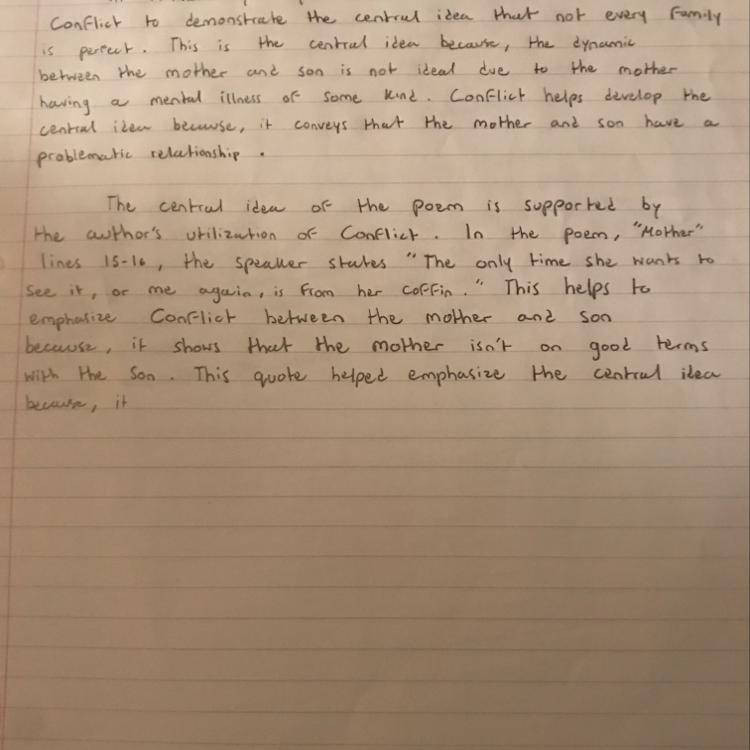 Conflict to demonstrate the central idea that not every family
is perfect. This is the central idea because, the dynamic
between the mother and son is not ideal due to the mother
having a mental illness of some kind. Conflict helps develop the
central idea because, it conveys that the mother and son have a
problematic relationship.
The central idea of the poem is supported by
the author's utilization of Conflict. In the poem, "Mother"
lines 15-16, the speaker states "The only time she wants to
see it, or me again, is from her coffin." This helps to
emphasize Conflict between the mother and son
because, it shows that the mother isn't on good terms
with the son. This quote helped emphasize the central idea
because, it